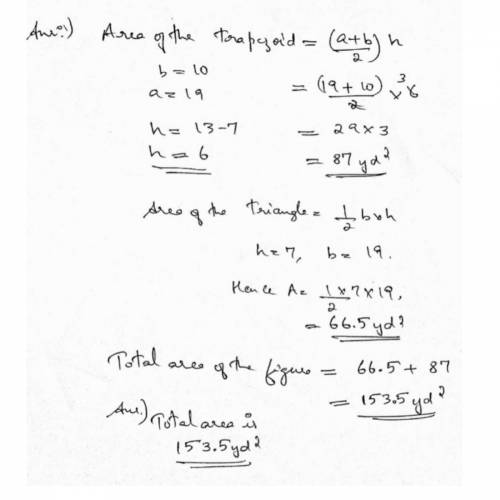 Ans:) Area of the trapezoid = (a+b/2) h
b = 10
a = 19 = (19 + 10)/2 × 6 3
h = 13-7 = 29 × 3
h = 6 = 87 yd²
Area of the triangle = 1/2 b×h
h=7, b = 19.
Hence A = 1/2 × 7 × 19,
= 66.5 yd²
Total area of the figure = 66.5 + 87
= 153.5 yd²
Ans.) Total area is
153.5 yd²